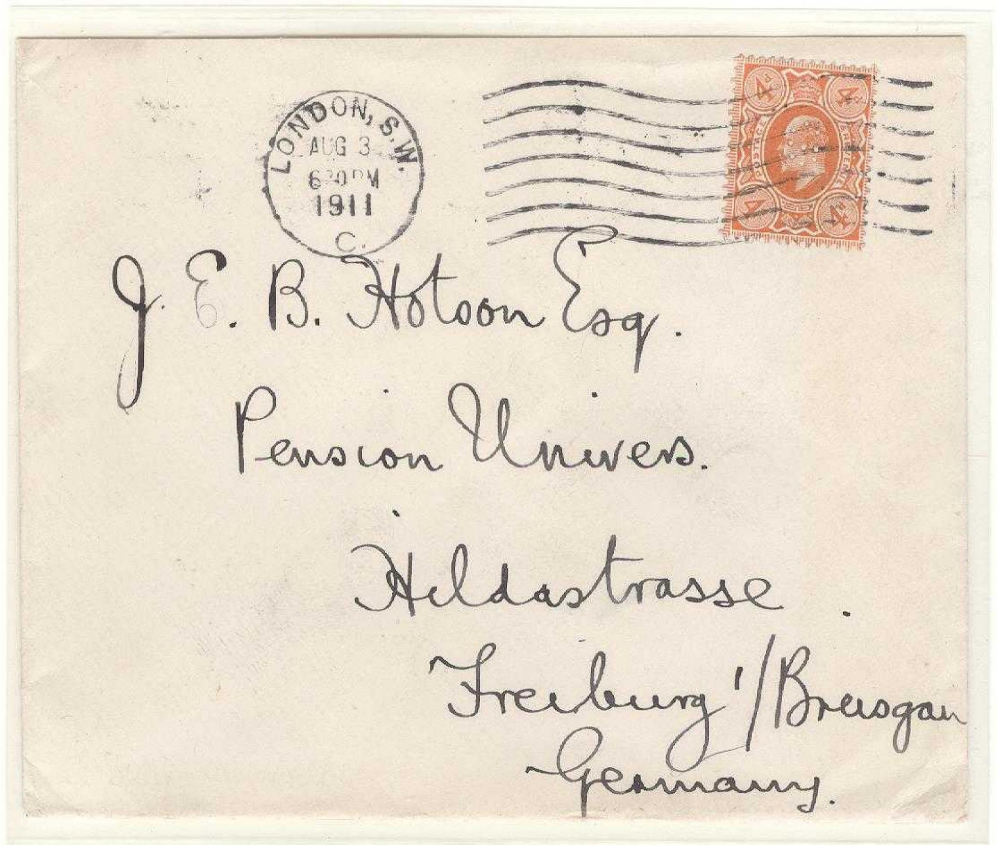 LONDON, S.W.
AUG 3
6 30 PM
1911
C.
4D 4D
4D 4D
J. E. B. Hotson Esq.
Pension Univers.
Hildastrasse
Freiburg i/Breisgau
Germany.